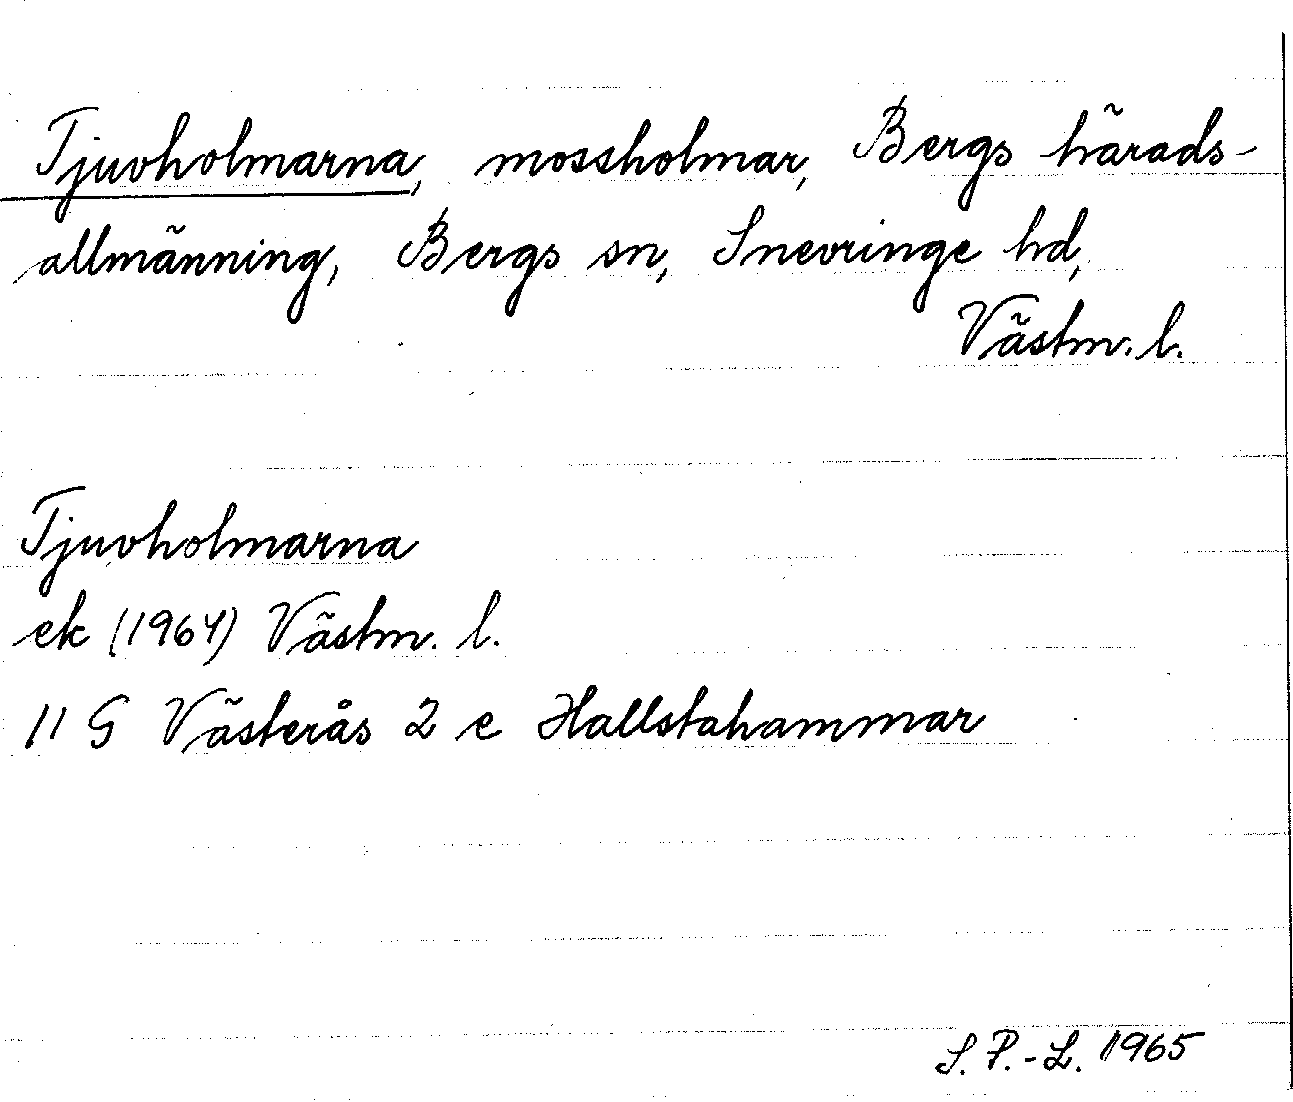 Tjuvholmarna, mossholmar, Bergs härads-
allmänning, Bergs sn, Snevringe hd,
Västm. l.
Tjuvholmarna
ek (1964) Västm. l.
11 G Västerås 2 e Hallstahammar
S. P.-L. 1965